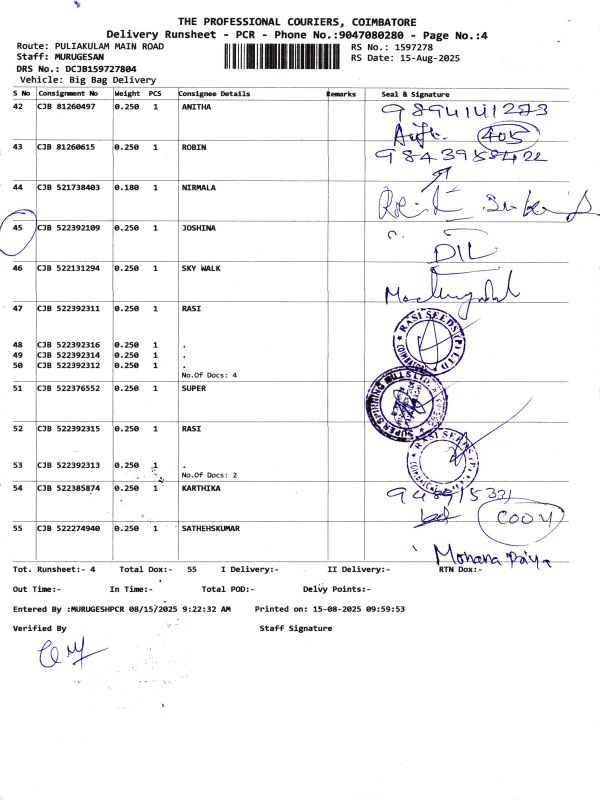 THE PROFESSIONAL COURIERS, COIMBATORE
Delivery Runsheet - PCR - Phone No.:9047080280 - Page No.:4
Route: PULIAKULAM MAIN ROAD RS No.: 1597278
Staff: MURUGESAN RS Date: 15-Aug-2025
DRS No.: DCJB159727804
Vehicle: Big Bag Delivery
S No Consignment No Weight PCS Consignee Details Remarks Seal & Signature
42 CJB 81260497 0.250 1 ANITHA 9894141273
405
43 CJB 81260615 0.250 1 ROBIN
44 CJB 521738403 0.180 1 NIRMALA
45 CJB 522392109 0.250 1 JOSHINA
DIL
46 CJB 522131294 0.250 1 SKY WALK
47 CJB 522392311 0.250 1 RASI
RASI SEEDS (P) LTD
48 CJB 522392316 0.250 1 .
49 CJB 522392314 0.250 1 .
50 CJB 522392312 0.250 1 .
No.Of Docs: 4
51 CJB 522376552 0.250 1 SUPER
SUPER SPINNING MILLS LTD.
52 CJB 522392315 0.250 1 RASI
RASI SEEDS
53 CJB 522392313 0.250 1 .
No.Of Docs: 2
54 CJB 522385874 0.250 1 KARTHIKA
55 CJB 522274940 0.250 1 SATHEHSKUMAR
Mohana Priya
Tot. Runsheet:- 4 Total Dox:- 55 I Delivery:- II Delivery:- RTN Dox:-
Out Time:- In Time:- Total POD:- Delvy Points:-
Entered By :MURUGESHPCR 08/15/2025 9:22:32 AM Printed on: 15-08-2025 09:59:53
Verified By Staff Signature